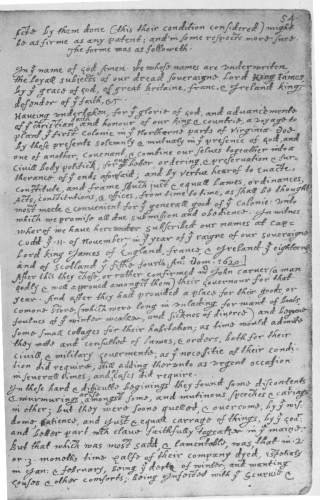 54
facte by them done (this their condition considered) might
be as firme as any patent; and in some respects more sure.
The forme was as followeth.
In yᵉ name of god Amen. We whose names are underwriten,
the loyall subjects of our dread soveraigne Lord King James
by yᵉ grace of god, of great Britaine, franc, & Ireland king,
defender of yᵉ faith, &c.
Haveing undertaken, for yᵉ glorie of god, and advancemente
of yᵉ christian faith and honour of our king & countrie, a voyage to
plant yᵉ first colonie in yᵉ Northerne parts of Virginia. Doe
by these presents solemnly & mutualy in yᵉ presence of god, and
one of another, covenant, & combine our selves togeather into a
civill body politick; for our better ordering, & preservation & fur-
therance of yᵉ ends aforesaid; and by vertue hearof to enacte,
constitute, and frame such just & equall lawes, ordinances,
Acts, constitutions, & offices, from time to time, as shall be thought
most meete & convenient for yᵉ generall good of yᵉ Colonie: unto
which we promise all due submission and obedience. In witnes
wherof we have hereunder subscribed our names at Cap-
Codd yᵉ .11. of November, in yᵉ year of yᵉ raigne of our soveraigne
Lord king James of England, france, & Ireland yᵉ eighteenth
and of Scotland yᵉ fiftie fourth. Ano: Dom. 1620.
After this they chose, or rather confirmed mr John Carver (a man
godly & well approved amongst them) their Governour for that
year. And after they had provided a place for their goods, or
comone store, (which were long in unlading for want of boats,
foulnes of yᵉ winter weather, and sicknes of diverce) and begune
some small cottages for their habitation; as time would admitte
they mette and consulted of lawes, & orders, both for their
civill & military Govermente, as yᵉ necessitie of their condi-
tion did require, still adding therunto as urgent occasion
in severall times, and as cases did require.
In these hard & difficulte beginings they found some discontents
& murmurings arise amongst some, and mutinous speeches & cariags
in other; but they were soone quelled, & overcome, by yᵉ wis-
dome, patience, and just & equall carrage of things, by yᵉ Govr
and better part wch clave faithfully togeather in yᵉ maine.
But that which was most sadd, & lamentable, was, that in .2.
or .3. moneths time halfe of their company dyed, espetialy
in Jan: & february, being yᵉ depth of winter, and wanting
houses & other comforts; being infected with yᵉ Scurvie &